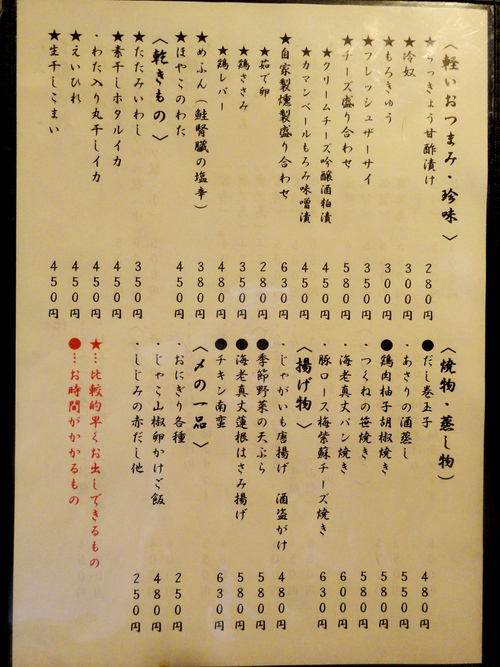 〈軽いおつまみ・珍味〉
★らっきょう甘酢漬け 280円
★冷奴 300円
★もろきゅう 300円
★フレッシュザーサイ 350円
★チーズ盛り合わせ 580円
★クリームチーズ吟醸酒粕漬 450円
★カマンベールもろみ味噌漬 450円
★自家製燻製盛り合わせ 630円
★茹で卵 280円
★鶏ささみ 350円
★鶏レバー 480円
★めふん(鮭腎臓の塩辛) 380円
★ほやこのわた 450円
〈乾きもの〉
★たたみいわし 350円
★素干しホタルイカ 450円
・わた入り丸干しイカ 450円
★えいひれ 450円
★生干しこまい 450円
〈焼物・蒸し物〉
●だし巻玉子 480円
・あさりの酒蒸し 550円
●鶏肉柚子胡椒焼き 580円
・つくねの笹焼き 580円
・海老真丈パン焼き 600円
・豚ロース梅紫蘇チーズ焼き 630円
〈揚げ物〉
・じゃがいも唐揚げ 酒盗がけ 480円
●季節野菜の天ぷら 580円
●海老真丈蓮根はさみ揚げ 580円
●チキン南蛮 630円
〈〆の一品〉
・おにぎり各種 250円
・じゃこ山椒卵かけご飯 480円
・しじみの赤だし他 250円
★…比較的早くお出しできるもの
●…お時間がかかるもの